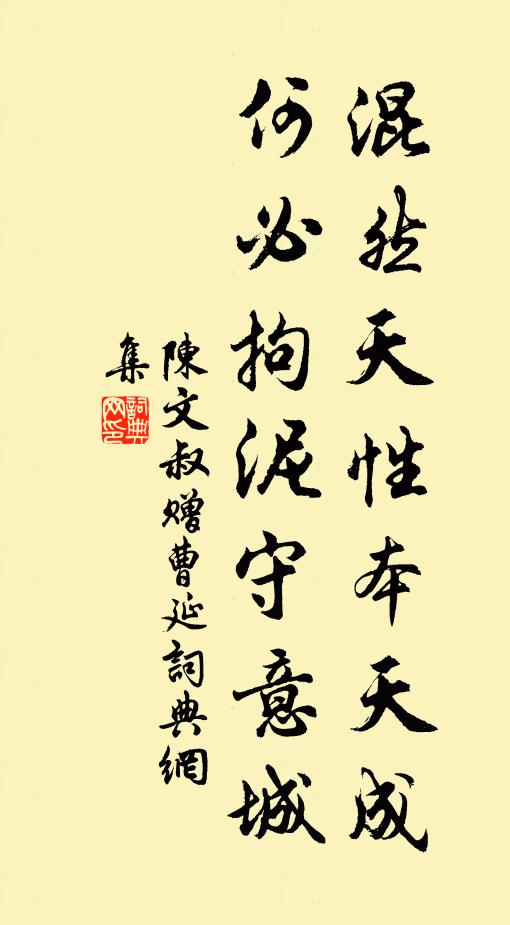 混然天性本天成
何必拘泥守意城
陳文叔贈曹延詞典網
集
詞典
网印